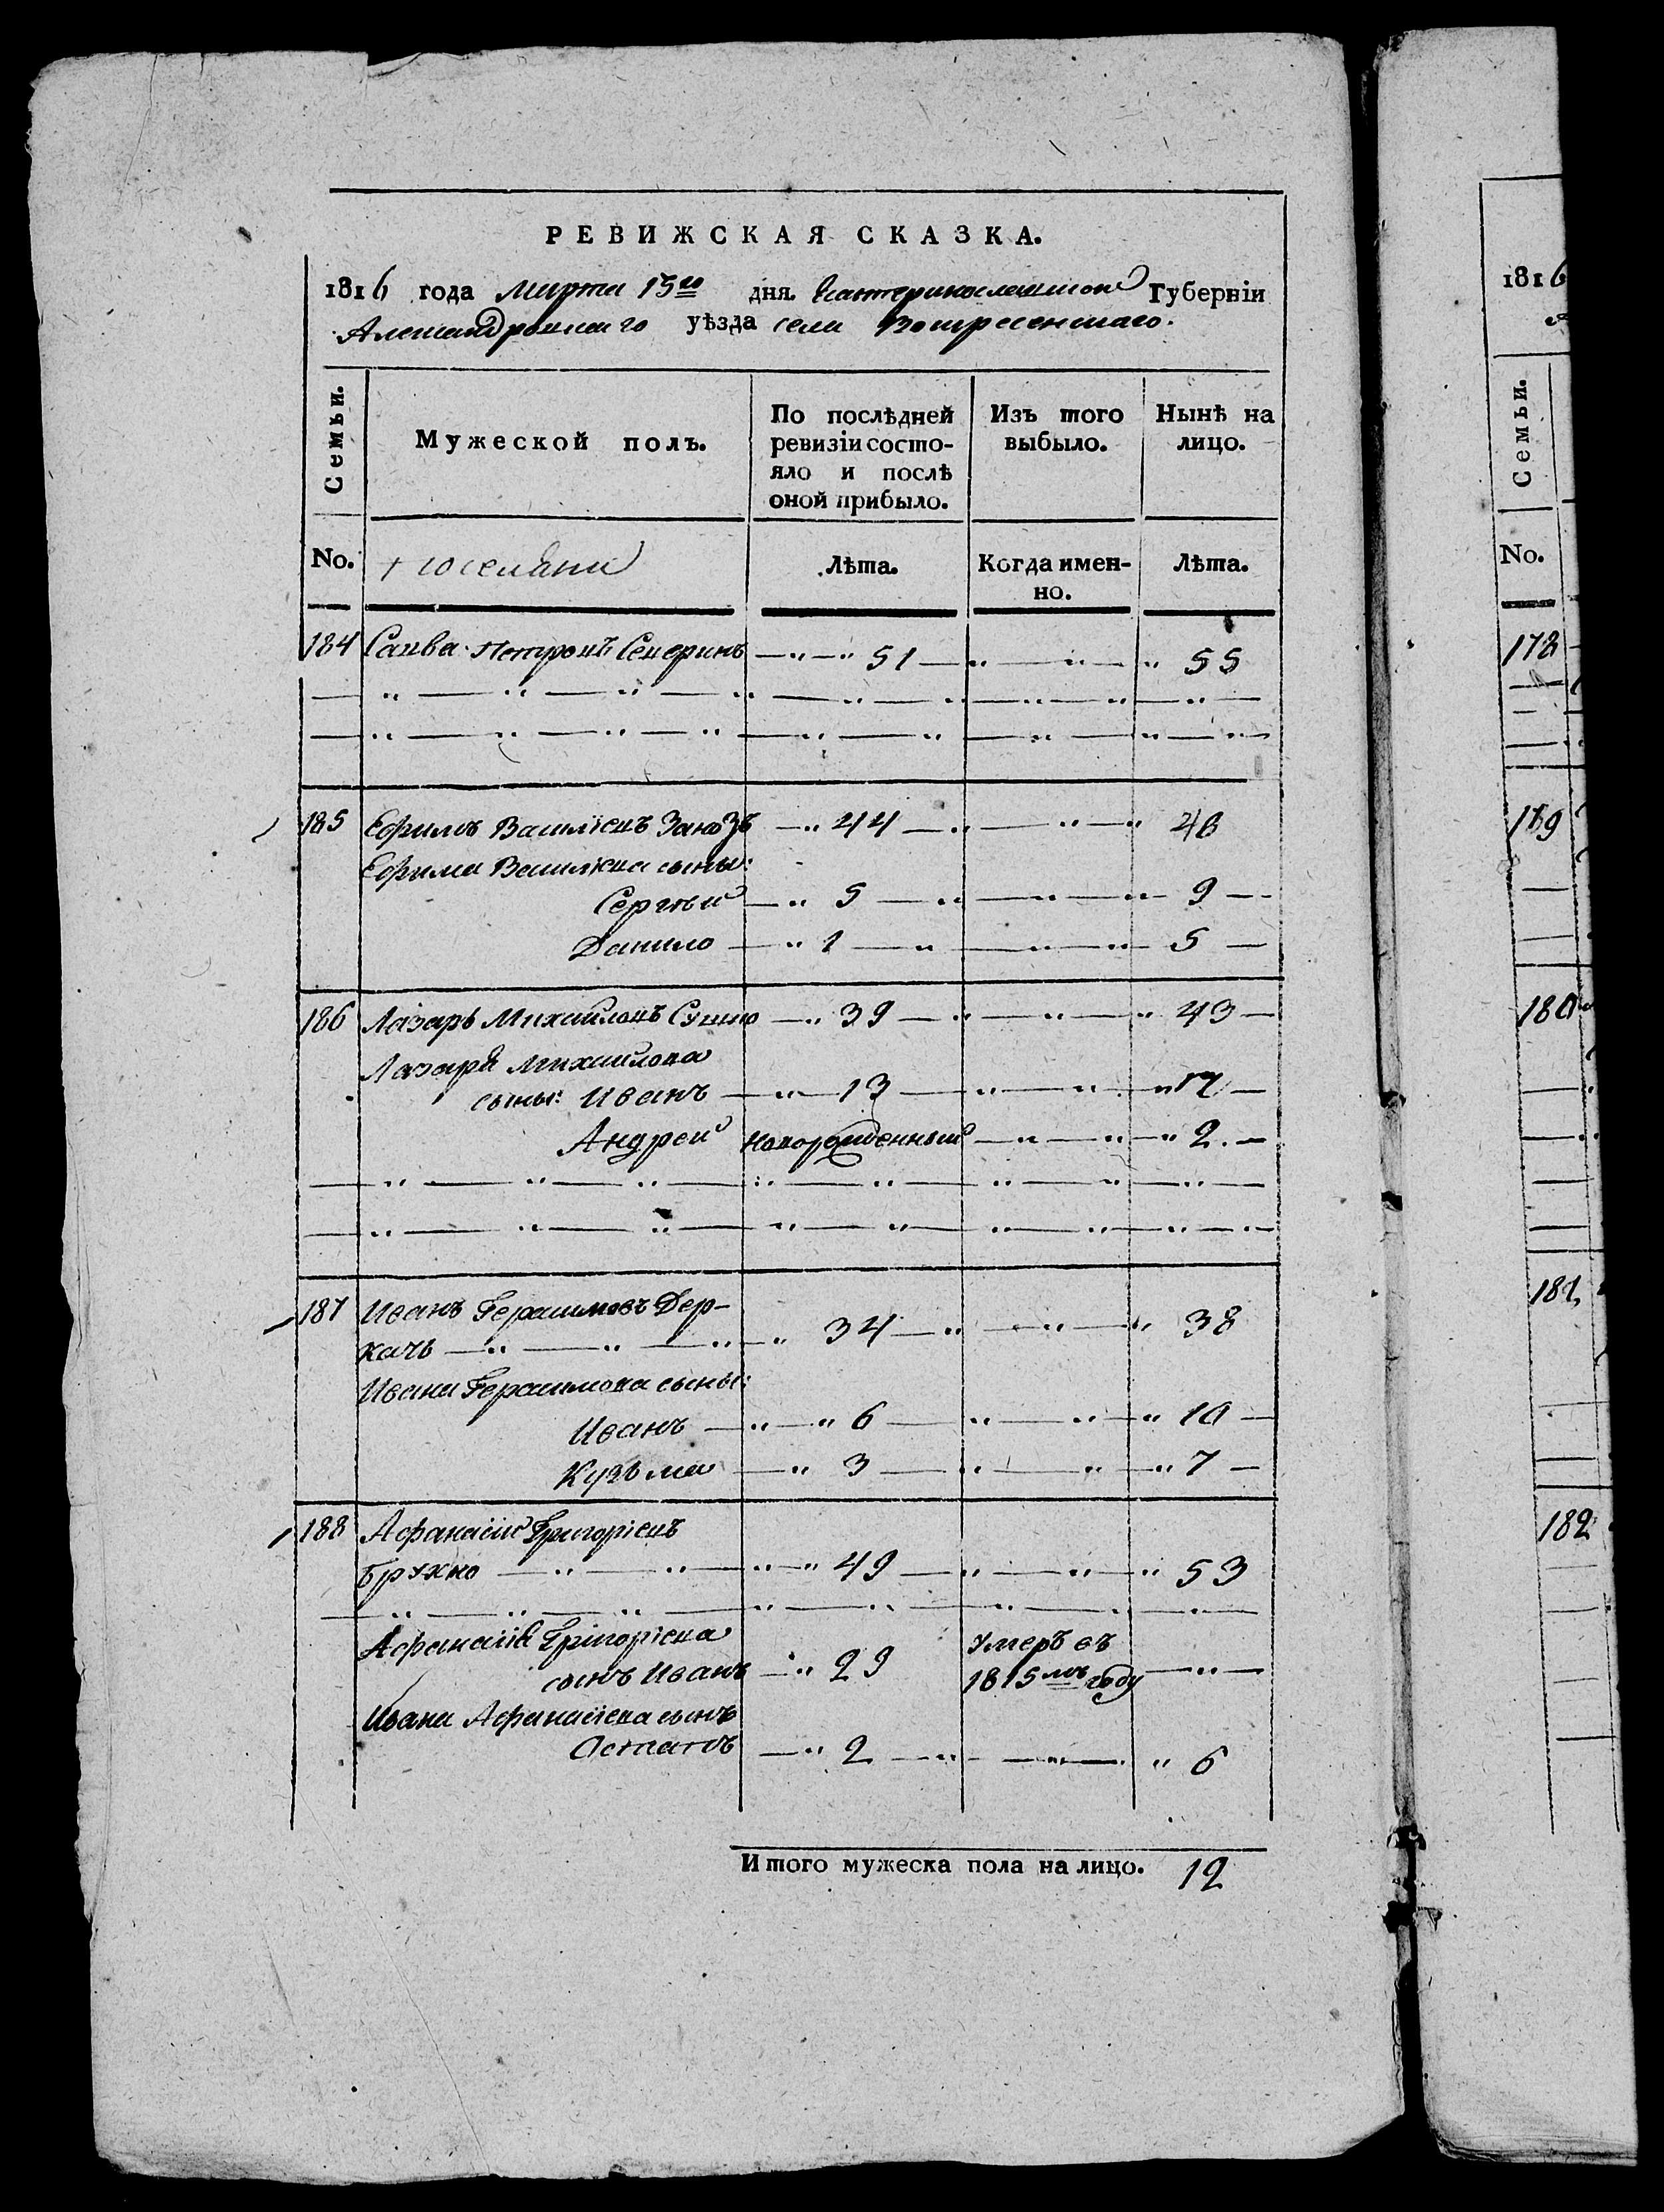 РЕВИЖСКАЯ СКАЗКА.
1816 года Марта 15го дня Екатеринославской Губерніи
Александровскаго уѣзда села Воскресенскаго.
Семьи.
Мужеской полъ.
По послѣдней ревизіи состояло и послѣ оной прибыло.
Изъ того выбыло.
Нынѣ на лицо.
No.
поселяни
Лѣта.
Когда именно.
Лѣта.
184 Савва Петровъ Северинъ 51 55
185 Ефимъ Василіевъ 44 48
Ефима Василіева сыны:
Сергѣй 5 9
Данило 1 5
186 Лазарь Михайловъ Сушко 39 43
Лазаря Михайлова
сыны: Иванъ 13 17
Андрей новорожденный 2
187 Иванъ Герасимовъ Дер-
качъ 34 38
Ивана Герасимова сыны:
Иванъ 6 10
Кузьма 3 7
188 Афанасій Григоріевъ
Брухно 49 53
Афанасія Григоріева
сынъ Иванъ 29 Умеръ въ 1815мъ году
Ивана Афанасіева сынъ
Остапъ 2 6
Итого мужеска пола на лицо. 12
1816
Семьи.
No.
178
179
180
181
182